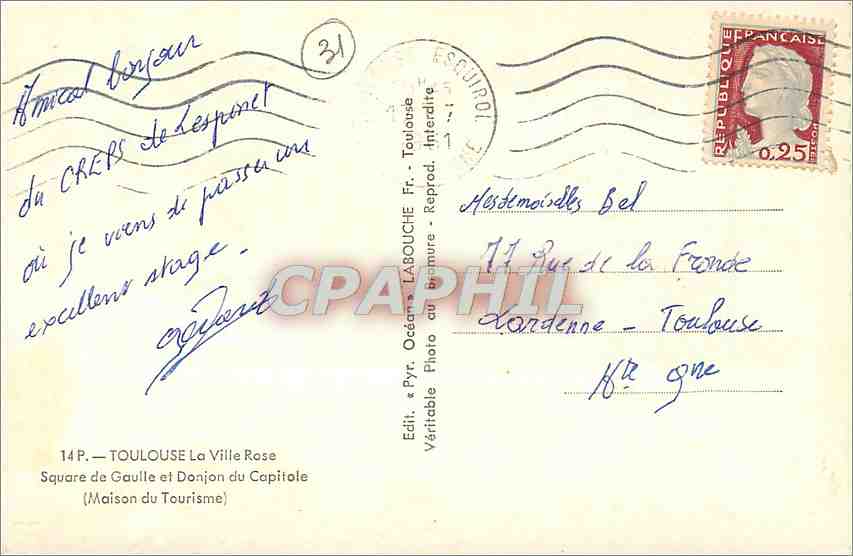 31
Amical bonjour
du CREPS de Lespinet
où je viens de passer un
excellent stage.
14 P. — TOULOUSE La Ville Rose
Square de Gaulle et Donjon du Capitole
(Maison du Tourisme)
Edit. « Pyr. Océan » LABOUCHE Fr. - Toulouse
Véritable Photo au Bromure - Reprod. Interdite
CPAPHIL
ESQUIROL
REPUBLIQUE FRANÇAISE
POSTES
0,25
Mesdemoiselles Bel
77 Rue de la Fronde
Lardenne - Toulouse
Hte Gne